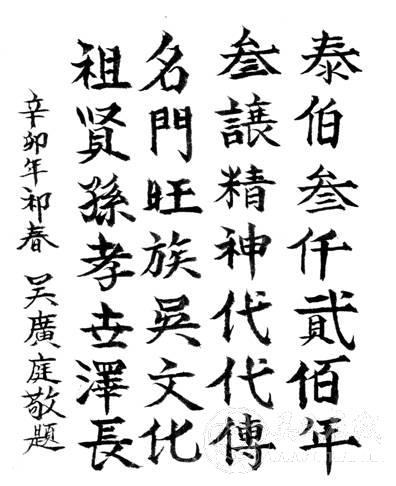 泰伯叁仟貳佰年
叁讓精神代代傳
名門旺族吳文化
祖賢孫孝世澤長
辛卯年初春 吴廣庭敬題